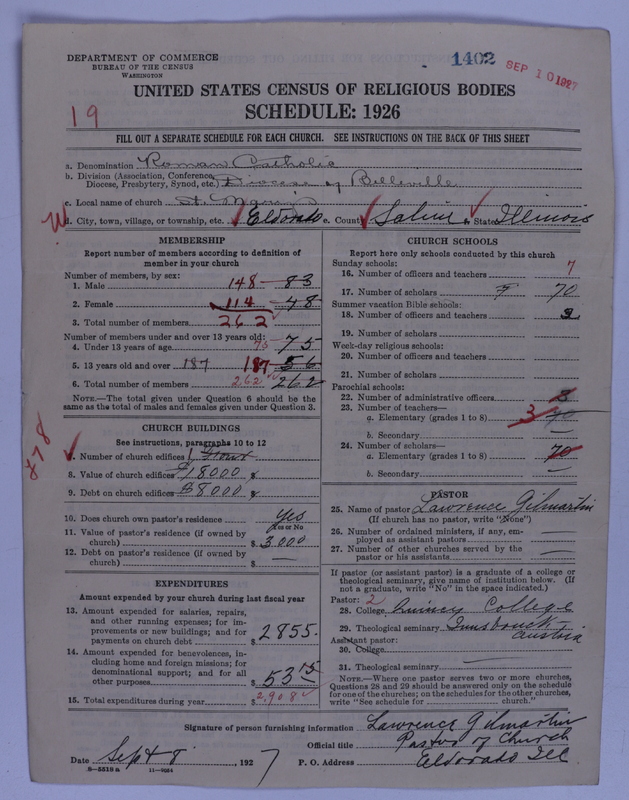 DEPARTMENT OF COMMERCE
BUREAU OF THE CENSUS
WASHINGTON
1402
SEP 10 1927
UNITED STATES CENSUS OF RELIGIOUS BODIES
SCHEDULE: 1926
19
FILL OUT A SEPARATE SCHEDULE FOR EACH CHURCH. SEE INSTRUCTIONS ON THE BACK OF THIS SHEET
a. Denomination Roman Catholic
b. Division (Association, Conference, Diocese, Presbytery, Synod, etc.) Diocese of Belleville
c. Local name of church St. Mary
d. City, town, village, or township, etc. Eldorado e. County Saline f. State Illinois
MEMBERSHIP
Report number of members according to definition of
member in your church
Number of members, by sex:
1. Male 148 83
2. Female 114 48
3. Total number of members 262
Number of members under and over 13 years old:
4. Under 13 years of age 75 75
5. 13 years old and over 187 187 56
6. Total number of members 262 262
NOTE.—The total given under Question 6 should be
same as the total of males and females given under Question 3.
CHURCH BUILDINGS
See instructions, paragraphs 10 to 12
7. Number of church edifices 1
8. Value of church edifices $18000 $
9. Debt on church edifices $8000 $
10. Does church own pastor's residence Yes
Yes or No
11. Value of pastor's residence (if owned by
church) $ 3.000
12. Debt on pastor's residence (if owned by
church) $ —
EXPENDITURES
Amount expended by your church during last fiscal year
13. Amount expended for salaries, repairs,
and other running expenses; for im-
provements or new buildings; and for
payments on church debt $ 2855.
14. Amount expended for benevolences, in-
cluding home and foreign missions; for
denominational support; and for all
other purposes $ 53 15
15. Total expenditures during year $ 2,908
CHURCH SCHOOLS
Report here only schools conducted by this church
Sunday schools:
16. Number of officers and teachers 7
17. Number of scholars 7 70
Summer vacation Bible schools:
18. Number of officers and teachers 3
19. Number of scholars
Week-day religious schools:
20. Number of officers and teachers
21. Number of scholars
Parochial schools:
22. Number of administrative officers 3
23. Number of teachers—
a. Elementary (grades 1 to 8) 3 70
b. Secondary —
24. Number of scholars—
a. Elementary (grades 1 to 8) 70
b. Secondary —
PASTOR
25. Name of pastor Lawrence Gilmartin
(If church has no pastor, write "None")
26. Number of ordained ministers, if any, em-
ployed as assistant pastors —
27. Number of other churches served by the
pastor or his assistants —
If pastor (or assistant pastor) is a graduate of a college or
theological seminary, give name of institution below. (If
not a graduate, write "No" in the space indicated.)
Pastor: 2
28. College Quincy College
29. Theological seminary Innsbruck Austria
Assistant pastor:
30. College
31. Theological seminary —
NOTE.—Where one pastor serves two or more churches,
Questions 28 and 29 should be answered only on the schedule
for one of the churches; on the schedules for the other churches,
write "See schedule for church."
Signature of person furnishing information Lawrence Gilmartin
Official title Pastor of Church
Date Sept 8, 1927 P. O. Address Eldorado Ill
8—5519 a 11—9024